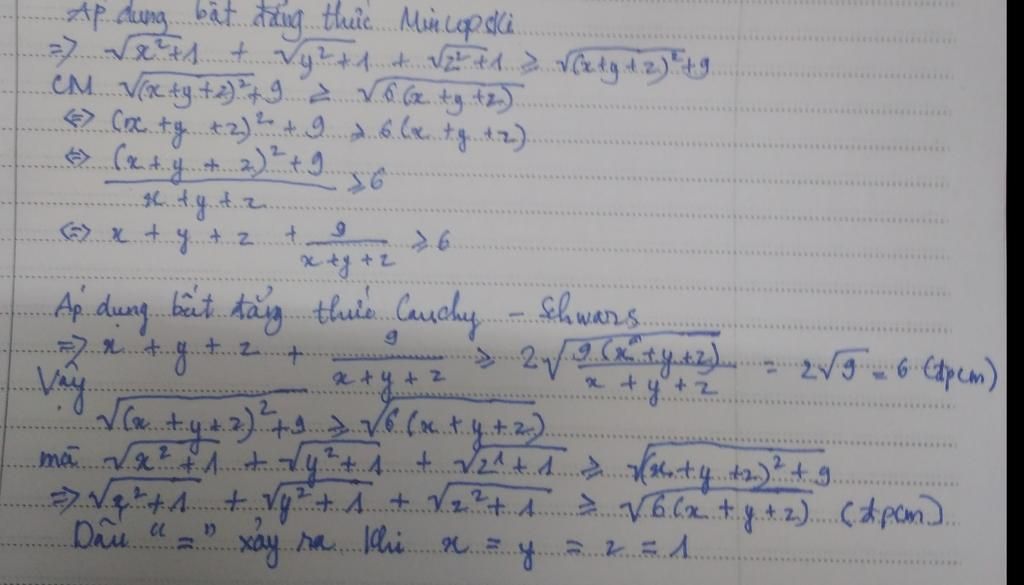 Áp dụng bất đẳng thức Mincopski
=> √(x²+1) + √(y²+1) + √(z²+1) ≥ √((x+y+z)²+9)
CM √((x+y+z)²+9) ≥ √(6(x+y+z))
<=> (x+y+z)² + 9 ≥ 6(x+y+z)
<=> ((x+y+z)²+9)/(x+y+z) ≥ 6
<=> x + y + z + 9/(x+y+z) ≥ 6
Áp dụng bất đẳng thức Cauchy – Schwars
=> x + y + z + 9/(x+y+z) ≥ 2√(9(x+y+z)/(x+y+z)) = 2√9 = 6 (đpcm)
Vậy
√((x+y+z)²+9) ≥ √(6(x+y+z))
mà √(x²+1) + √(y²+1) + √(z²+1) ≥ √((x+y+z)²+9)
=> √(x²+1) + √(y²+1) + √(z²+1) ≥ √(6(x+y+z)) (đpcm)
Dấu "=" xảy ra khi x = y = z = 1